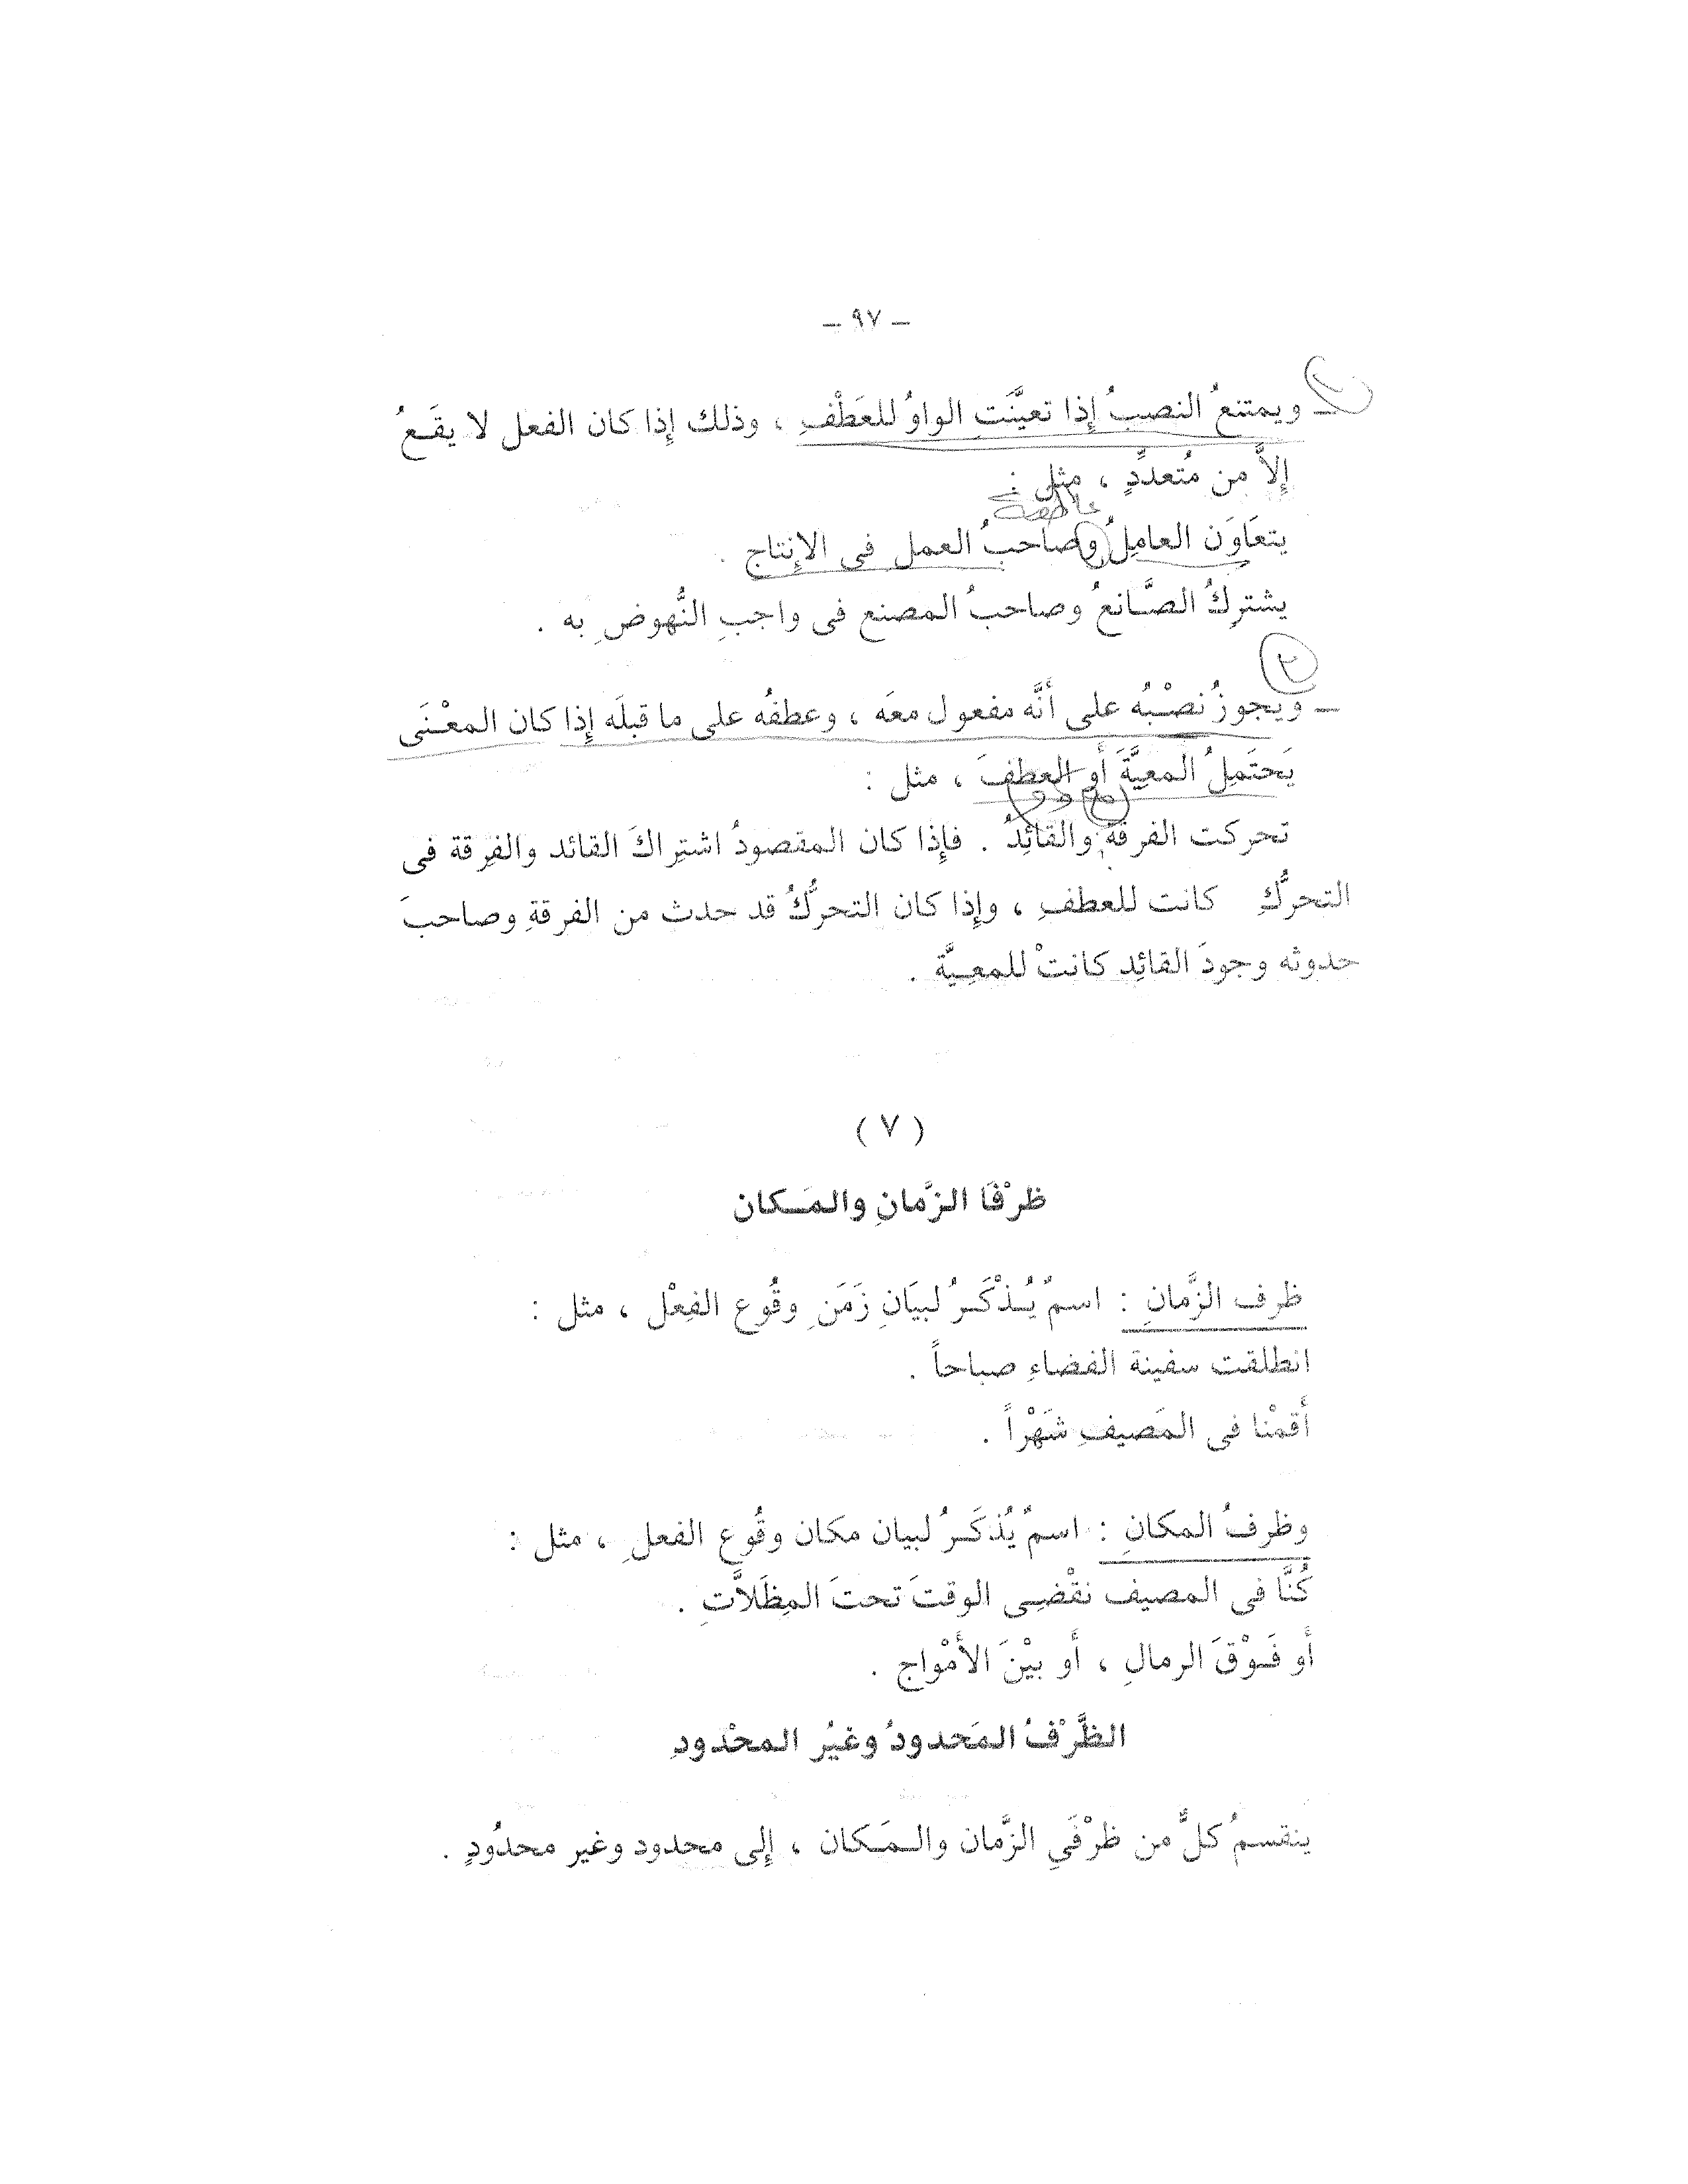 – ٩٧ –
– ويمتنعُ النصبُ إِذا تعيَّنَتِ الواوُ للعَطْفِ ، وذلك إِذا كان الفعل لا يقَـعُ
إِلاَّ من مُتعددٍّ ، مثل :
عاطفة
يتعَاوَن العامِلُ وصاحبُ العمل فى الإِنتاج .
يشتركُ الصَّـانعُ وصاحبُ المصنع فى واجبِ النُّهوضِ به .
٣
– ويَجوزُ نصْـبُه على أنَّه مفعول معَه ، وعطفُه على ما قبلَه إِذا كان المعْـنَى
يَحتَمِلُ المعِيَّةَ أَو العطفَ ، مثل :
تحركت الفرقةُ والقائِدُ . فإِذا كان المقصودُ اشتِراكَ القائد والفرقة فى
التحرُّكِ كانت للعطفِ ، وإِذا كان التحرُّكُ قد حدث من الفرقةِ وصاحبَ
حدوثه وجودَ القائِد كانتْ للمعيَّة .
( ٧ )
ظرْفَا الزَّمانِ والمَـكان
ظرف الزَّمانِ : اسمٌ يُـذْكَـرُ لبيَانِ زَمَنِ وقُوع الفِعْل ، مثل :
انطلقت سفينة الفضاءِ صباحاً .
أَقمْنا فى المَصيفِ شَهْراً .
وظرفُ المكانِ : اسمٌ يُذكَـرُ لبيان مكان وقُوع الفعلِ ، مثل :
كُنَّا فى المصيف نقْضِـى الوقتَ تحتَ المِظَلاَّتِ .
أَو فَـوْقَ الرمالِ ، أَو بيْنَ الأَمْواج .
الظَّرْفُ المَحدودُ وغيْرُ المحْدودِ
ينقسمُ كلٌّ من ظرْفَىِ الزَّمان والـمَـكان ، إِلى محدود وغير محدُودٍ .